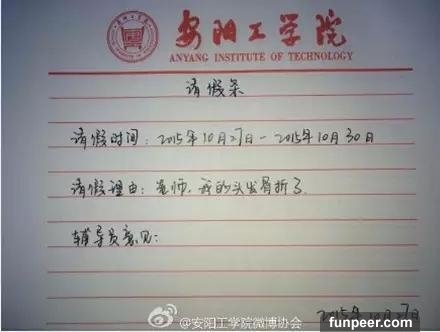 安阳工学院
ANYANG INSTITUTE OF TECHNOLOGY
请假条
请假时间：2015年10月27日－2015年10月30日
请假理由：老师，我的头发骨折了.
辅导员意见：
2015年10月27日
@安阳工学院微博协会
funpeer.com